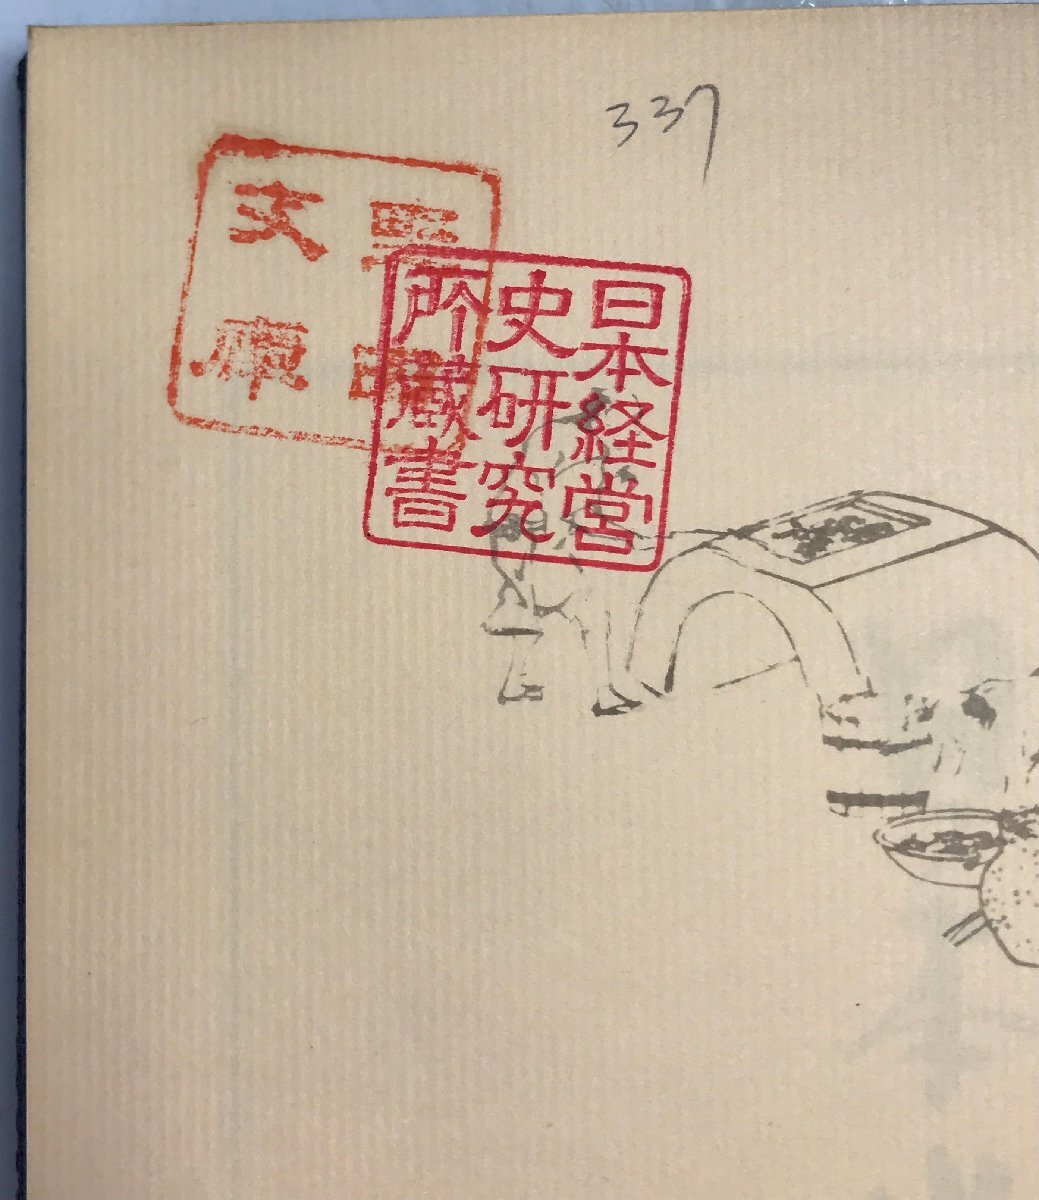 337
日本経営
史研究
所蔵書
文庫